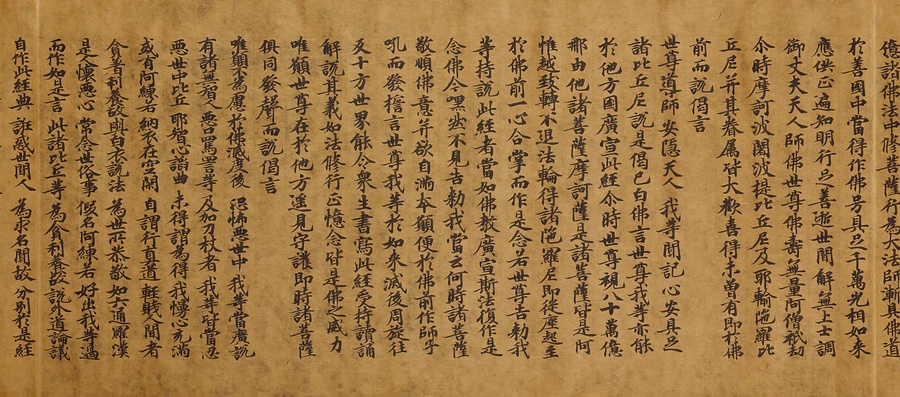 億諸佛法中修菩薩行為大法師漸具佛道
於善國中當得作佛号具足千萬光相如來
應供正遍知明行足善逝世間解無上士調
御丈夫天人師佛世尊佛壽無量阿僧祇劫
尒時摩訶波闍波提比丘尼及耶輸陁羅比
丘尼并其眷屬皆大歡喜得未曾有即於佛
前而說偈言
世尊導師 安隱天人 我等聞記 心安具足
諸比丘尼說是偈已白佛言世尊我等亦能
於他方國廣宣此經尒時世尊視八十萬億
那由他諸菩薩摩訶薩是諸菩薩皆是阿
惟越致轉不退法輪得諸陁羅尼即從座起至
於佛前一心合掌而作是念若世尊告勅我
等持說此經者當如佛教廣宣斯法復作是
念佛今嘿然不見告勅我當云何時諸菩薩
敬順佛意并欲自滿本願便於佛前作師子
吼而發誓言世尊我等於如來滅後周旋往
反十方世界能令衆生書寫此經受持讀誦
解說其義如法修行正憶念皆是佛之威力
唯願世尊在於他方遙見守護即時諸菩薩
俱同發聲而說偈言
唯願不為慮 於佛滅度後 恐怖惡世中 我等當廣說
有諸無智人 惡口罵詈等 及加刀杖者 我等皆當忍
惡世中比丘 耶智心諂曲 未得謂為得 我慢心充滿
或有阿練若 納衣在空閑 自謂行真道 輕賤間者
貪著利養故 與白衣說法 為世所恭敬 如六通羅漢
是人懷惡心 常念世俗事 假名阿練若 好出我等過
而作如是言 此諸比丘等 為貪利養故 說外道論議
自作此經典 誑惑世間人 為求名聞故 分別於是經